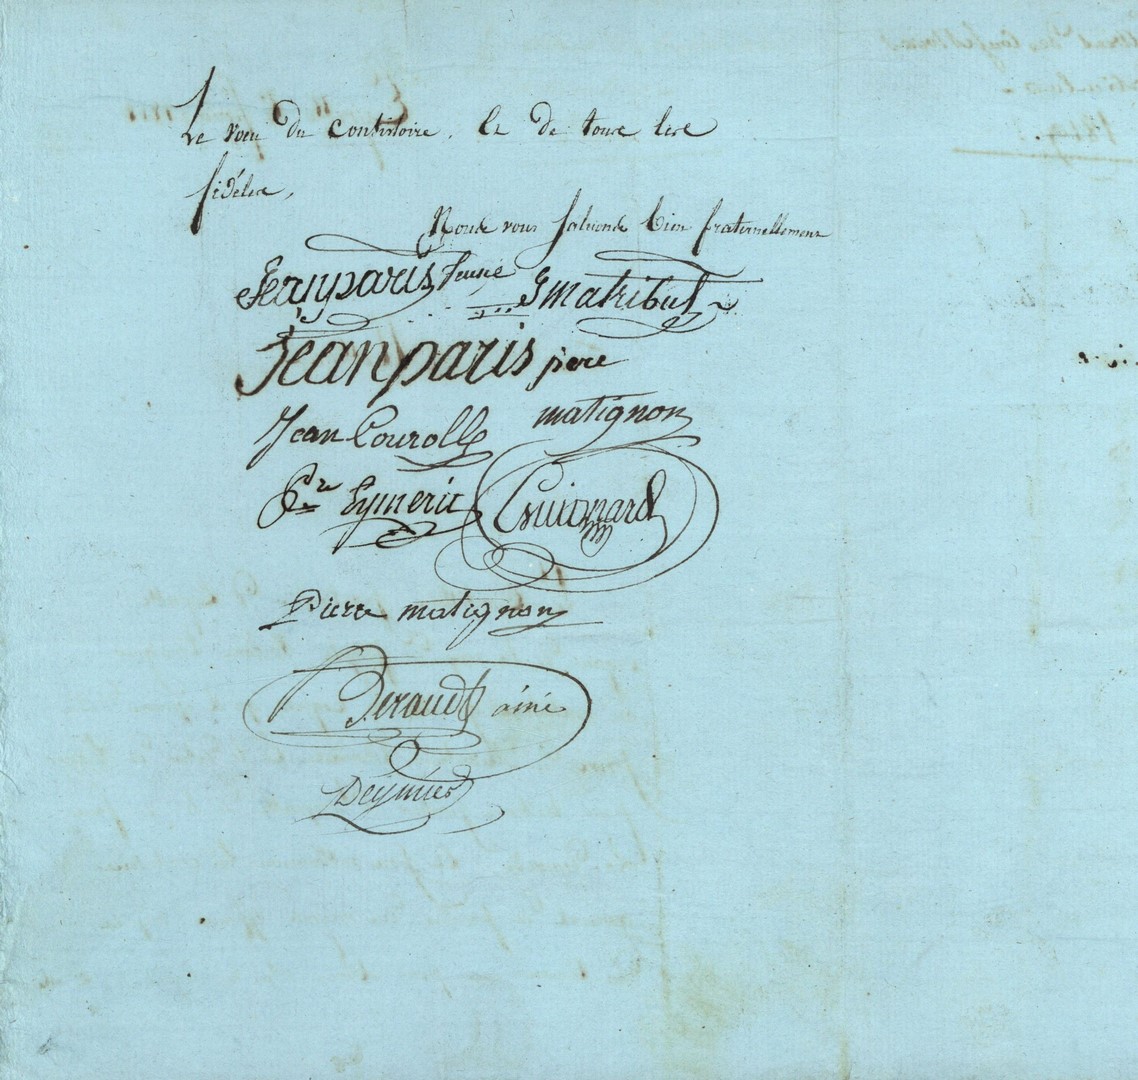 Le vœu du consistoire, et de tous les
fidéles,
Nous vous saluons bien fraternellement
Jean paris jeune J matribut
Jean paris pere
Jean Courolle matignon
Pre Eymeric Guionard
Pierre matignon
Beraud ainé
Deymier